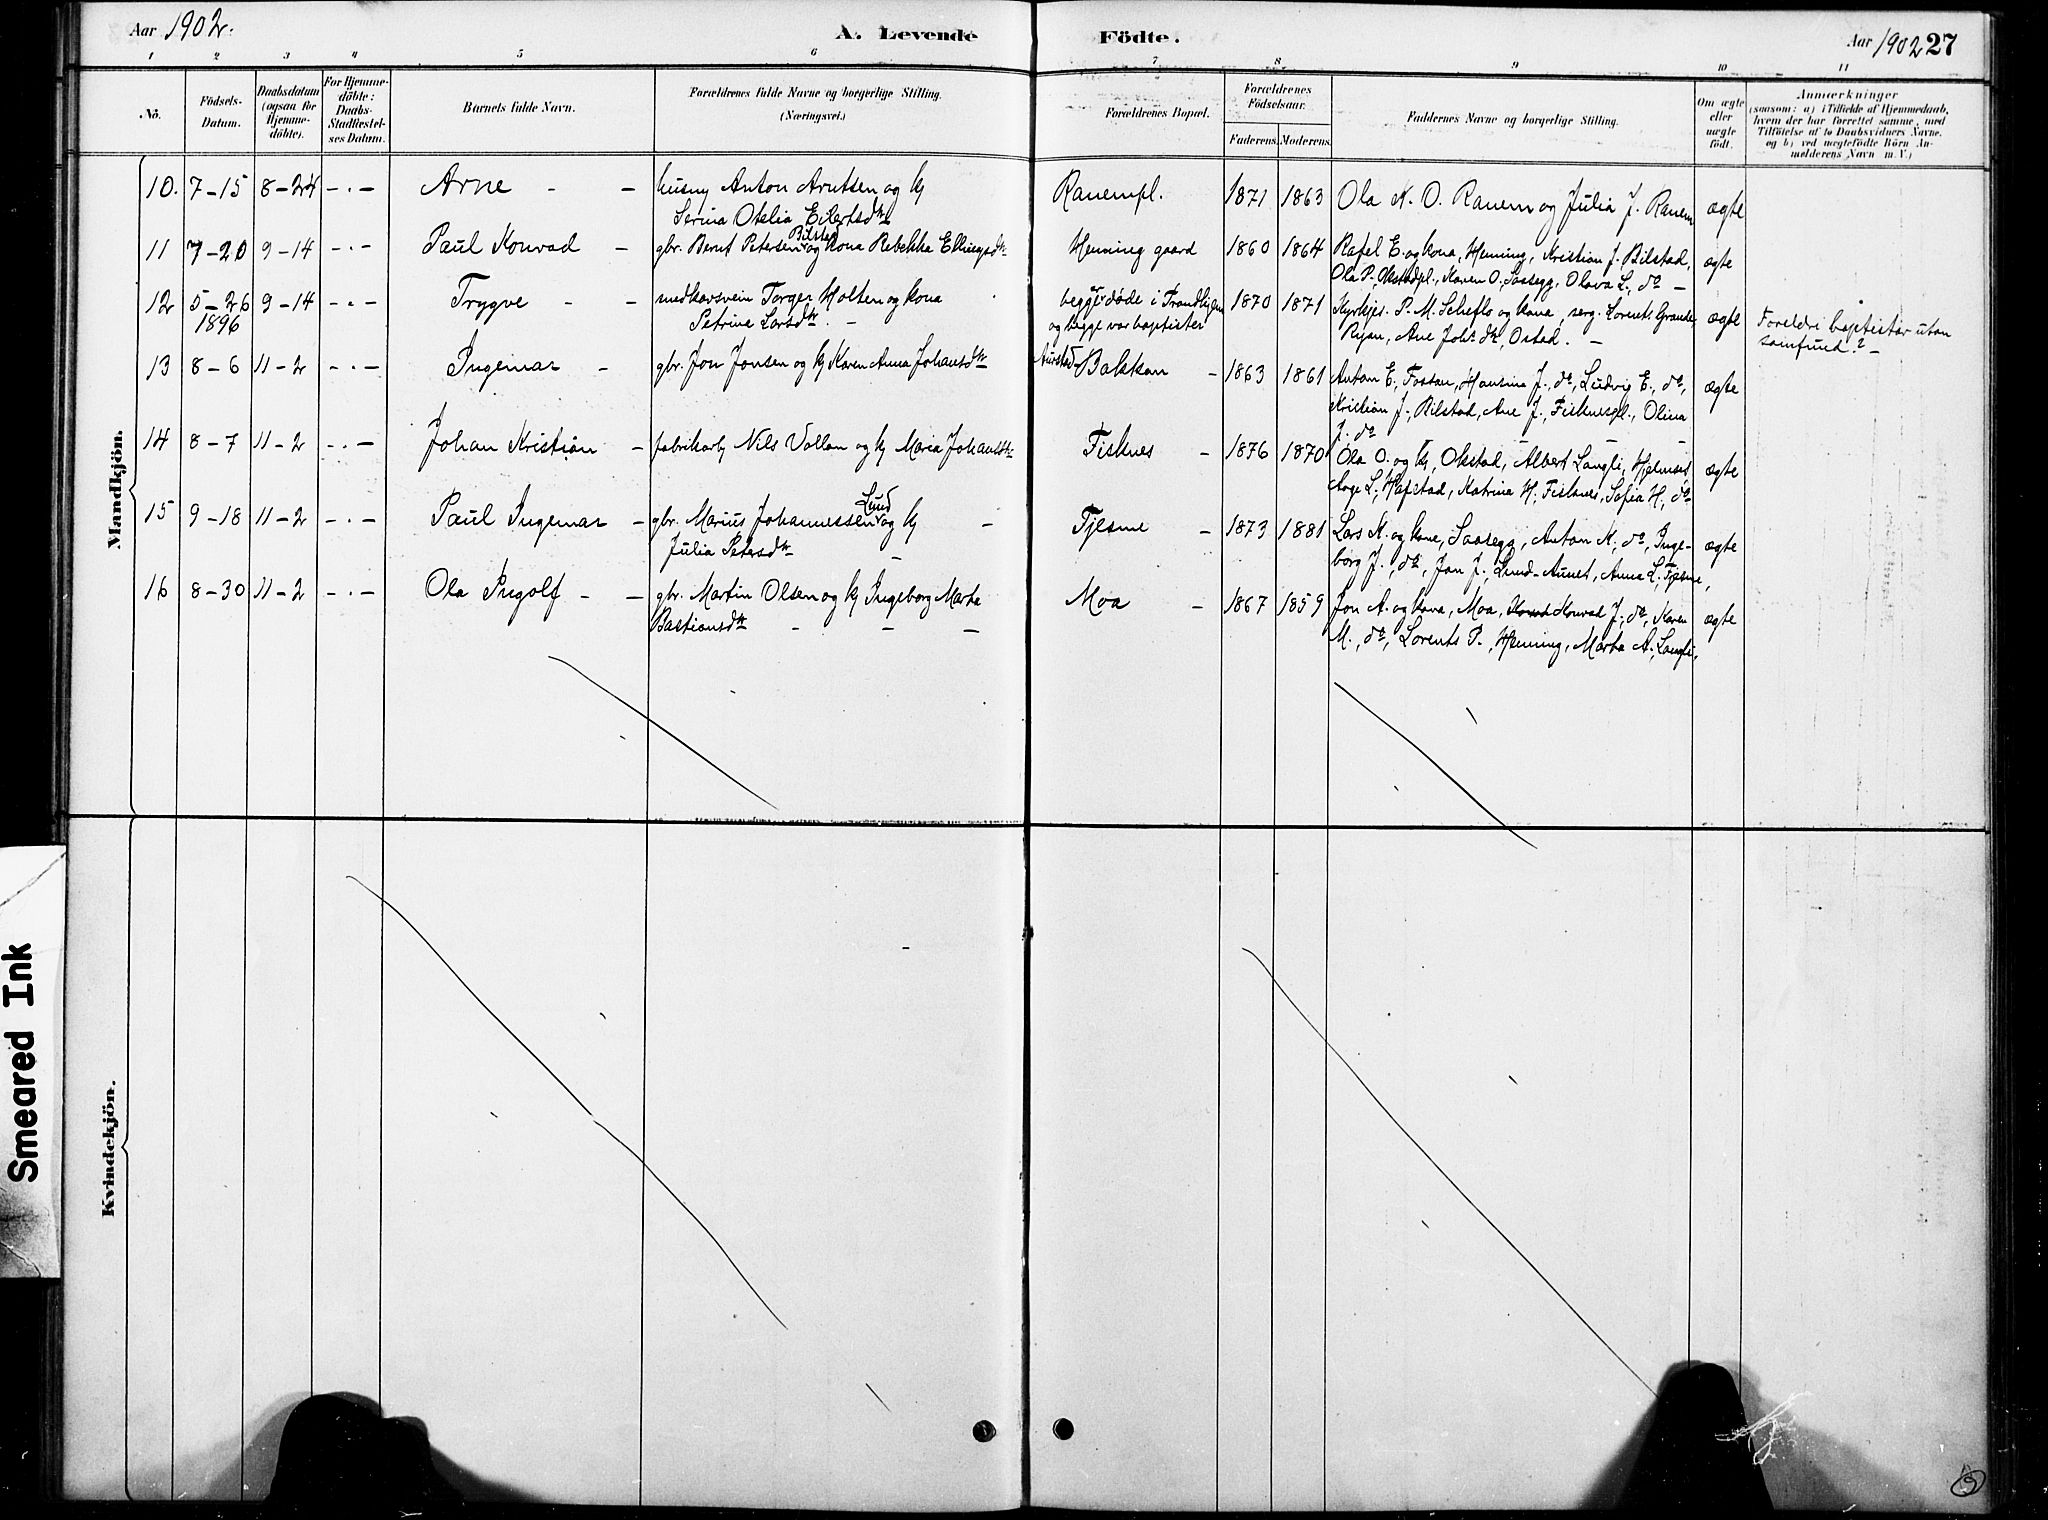 Aar 1902.
A. Levende Födte.
Aar 1902 27
1 2 3 4 5 6 7 8 9 10 11
No.
Födsels-
Datum.
Daabsdatum
(ogsaa for
Hjemme-
döbte).
For Hjemme-
döbte:
Daabs-
Stadfæstel-
ses Datum.
Barnets fulde Navn.
Forældrenes fulde Navne og borgerlige Stilling.
(Næringsvei.)
Forældrenes Bopæl.
Forældrenes
Födselsaar.
Faderens. Moderens.
Faddernes Navne og borgerlige Stilling.
Om ægte
eller
uægte
födt.
Anmærkninger
(saasom: a) i Tilfælde af Hjemmedaab,
hvem der har forrettet samme, med
Tilföielse af to Daabsvidners Navne.
og b) ved uægtefödte Börn An-
melderens Navn m. V.)
Mandkjön.
10. 7-15 8-24 -.- Arne - - husm Anton Arntsen og k
Serina Otelia Eilertsdtr
Ranempl. 1871 1863 Ola K. O. Ranem og Julia J. Ranem ægte
11 7-20 9-14 -.- Paul Konrad - gbr. Bernt Petersen Bilstad og kona Rebekka Ellingsdtr
Heming gaard 1860 1864 Rafel E. og kona, Heming, Kristian J. Bilstad, ægte
Ola P. Okstadpl., Karen O. Saasegg, Olava L., do -
12 5-26 9-14 -.- Trygve - - smedkarsvein Torger Holten og kona
1896 Petrine Larsdtr. -
begge døde i Trondhjem 1870 1871 Kyrkjes. P. M. Scheflo og kona, serg. Lorents Grande, ægte
og begge var baptister Ryan, Ane Johsdtr, Ostad. -
Foreldri baptistar utan
samfund? -
13 8-6 11-2 -.- Ingemar - gbr. Jon Jonsen og k Karen Anna Johansdtr
Aunstad-Bakkan - 1863 1861 Anton E. Fossan, Hansina J., do, Ludvig E., do, ægte
Kristian J., Bilstad, Ane J., Fisknespl., Olina
J. do - -
14 8-7 11-2 -.- Johan Kristian - fabrikarb Nils Vollan og k Maria Johansdtr
Fisknes - 1876 1870 Ola O. og k, Okstad, Albert Langli, Hjelmset ægte
Aage L., Hafstad, Katrina H. Fisknes, Sofia H., do
15 9-18 11-2 -.- Paul Ingemar - gbr. Marius Johannessen Lund og k -
Julia Petersdtr -
Tjesme - 1873 1881 Lars K. og kone, Saasegg, Anton K., do, Inge- ægte
borg J., do, Jon J., Lund-Aunet, Anna L. Tjesme,
16 8-30 11-2 -.- Ola Ingolf - - gbr. Martin Olsen og k Ingeborg Marta
Bastiansdtr - - -
Moa - 1867 1859 Jon A. og kona, Moa, Konrad J., do, Karen ægte
M., do, Lorents P., Heming, Marta A. Langli,
Kvindekjön.
Smeared Ink